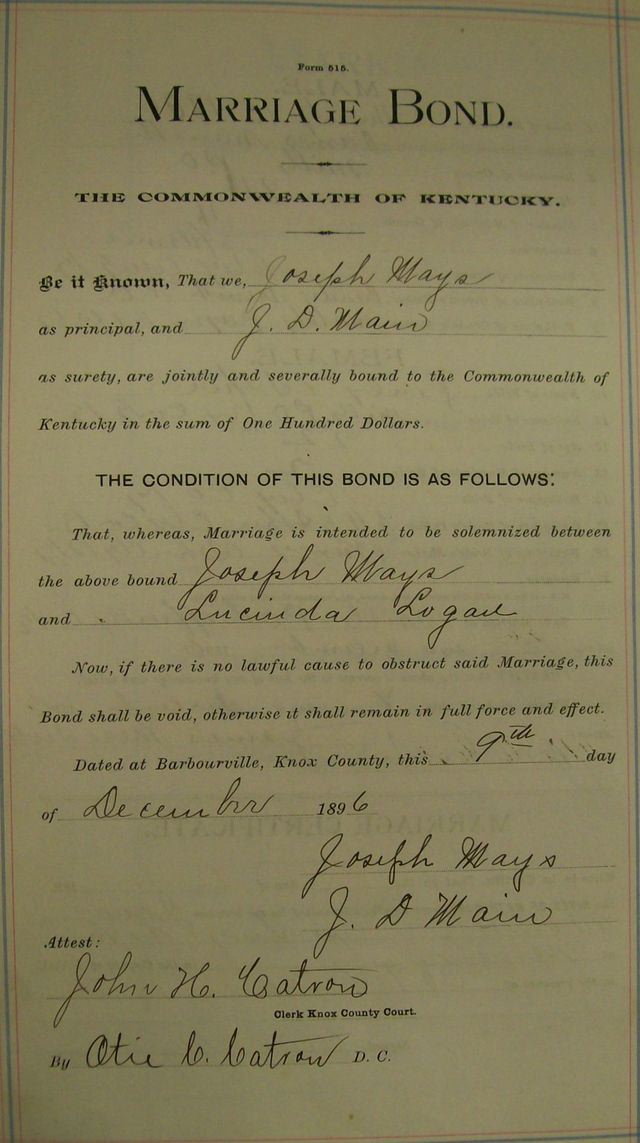 Form 515.
MARRIAGE BOND.
THE COMMONWEALTH OF KENTUCKY.
Be it Known, That we, Joseph Mays
as principal, and J. D. Main
as surety, are jointly and severally bound to the Commonwealth of
Kentucky in the sum of One Hundred Dollars.
THE CONDITION OF THIS BOND IS AS FOLLOWS:
That, whereas, Marriage is intended to be solemnized between
the above bound Joseph Mays
and Lucinda Logan
Now, if there is no lawful cause to obstruct said Marriage, this
Bond shall be void, otherwise it shall remain in full force and effect.
Dated at Barbourville, Knox County, this 9th day
of December 1896
Joseph Mays
J. D Main
Attest:
John H. Catron
Clerk Knox County Court.
By Otie C. Catron D. C.